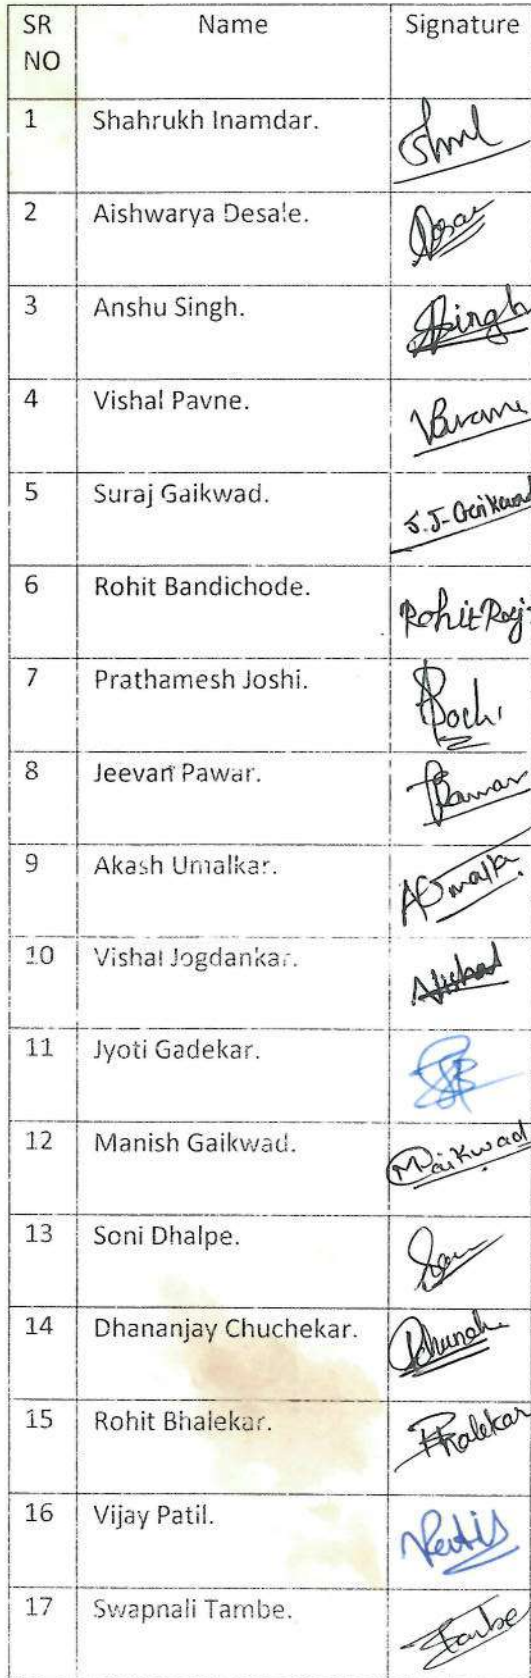 SR NO Name Signature
1 Shahrukh Inamdar.
2 Aishwarya Desale.
3 Anshu Singh. Singh
4 Vishal Pavne.
5 Suraj Gaikwad. S.J-Gaikwad
6 Rohit Bandichode. Rohit Raj
7 Prathamesh Joshi.
8 Jeevan Pawar. Pawar
9 Akash Umalkar.
10 Vishal Jogdankar. Vishal
11 Jyoti Gadekar.
12 Manish Gaikwad. MGaikwad
13 Soni Dhalpe.
14 Dhananjay Chuchekar.
15 Rohit Bhalekar.
16 Vijay Patil.
17 Swapnali Tambe. Tambe